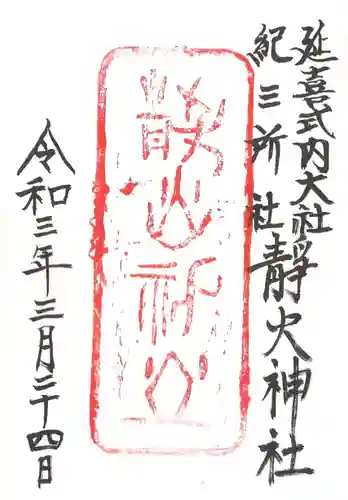 延喜式内大社
紀三所社靜火神社
令和三年三月二十四日